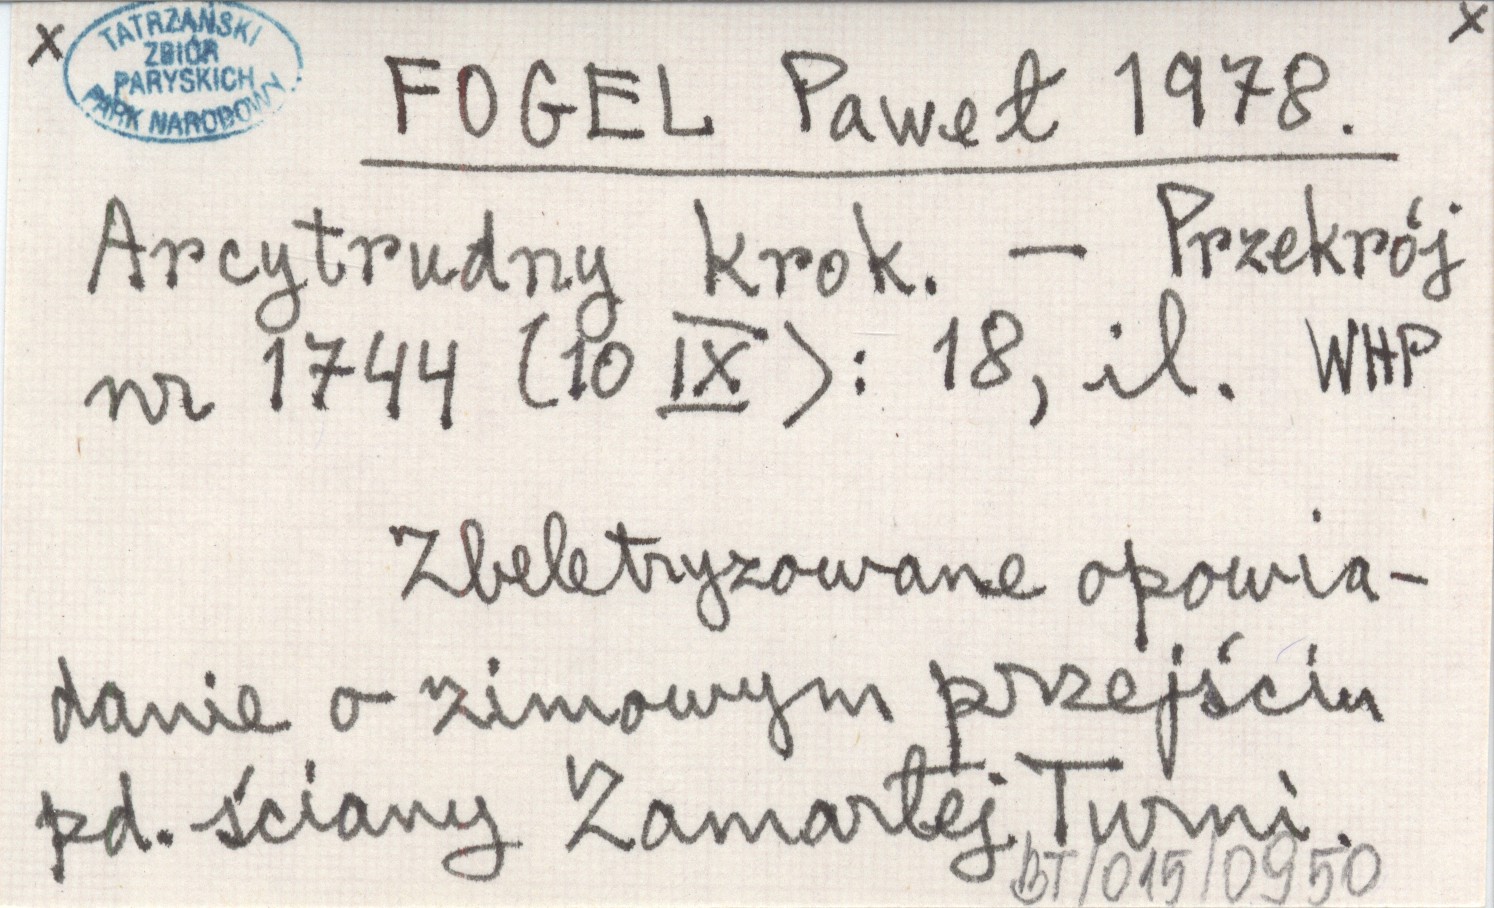 x TATRZAŃSKI x
ZBIÓR
PARYSKICH
PARK NARODOWY
FOGEL Paweł 1978.
Arcytrudny krok. — Przekrój
nr 1744 (10 IX): 18, il. WHP
Zbeletryzowane opowia-
danie o zimowym przejściu
pd. ściany Zamarłej Turni.
BT/015/0950